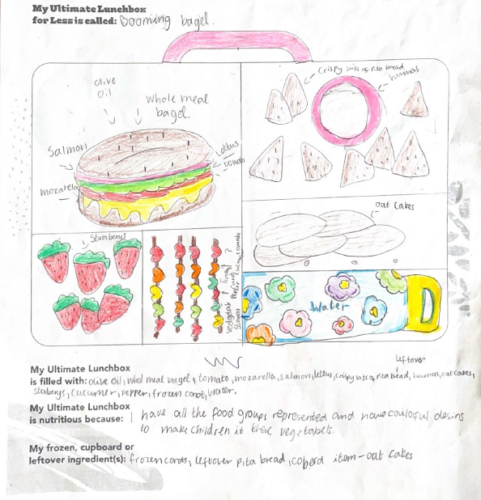 My Ultimate Lunchbox
for Less is called: Booming bagel.
olive
oil
whole meal
bagel.
Salmon
mozarella
Lettus
tomato
Crispy bits of pita bread
hummus
oat cakes
Straberys
Water
leftover
My Ultimate Lunchbox
is filled with: olive oil, whol meal bagel, tomato, mozarella, salmon, lettus, crispy bits of pita bread, hummus, oat cakes,
strabeys, cucumer, pepper, frozen carots, water.
My Ultimate Lunchbox
is nutritious because: I have all the food groups represented and have coulorful
to make children it their vegetabels.
My frozen, cupboard or
leftover ingredient(s): frozen carots, leftover pita bread, coberd item-oat cakes